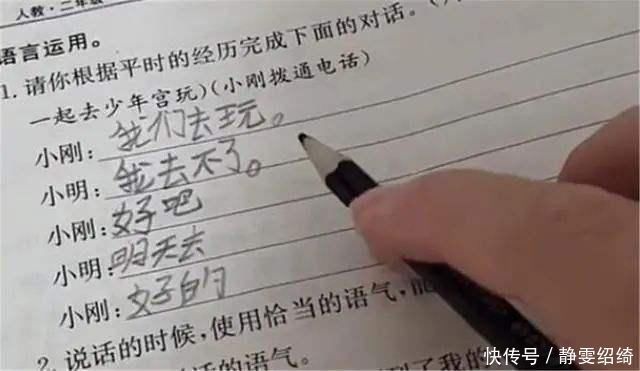 人教·二年级
语言运用。
1.请你根据平时的经历完成下面的对话。(
一起去少年宫玩)(小刚拨通电话)
小刚:我们去玩。
小明:我去不了。
小刚:好吧
小明:明天去
小刚:好的
2.说话的时候,使用恰当的语气,能
话的语气。
到了我的
快传号/静雯绍绮